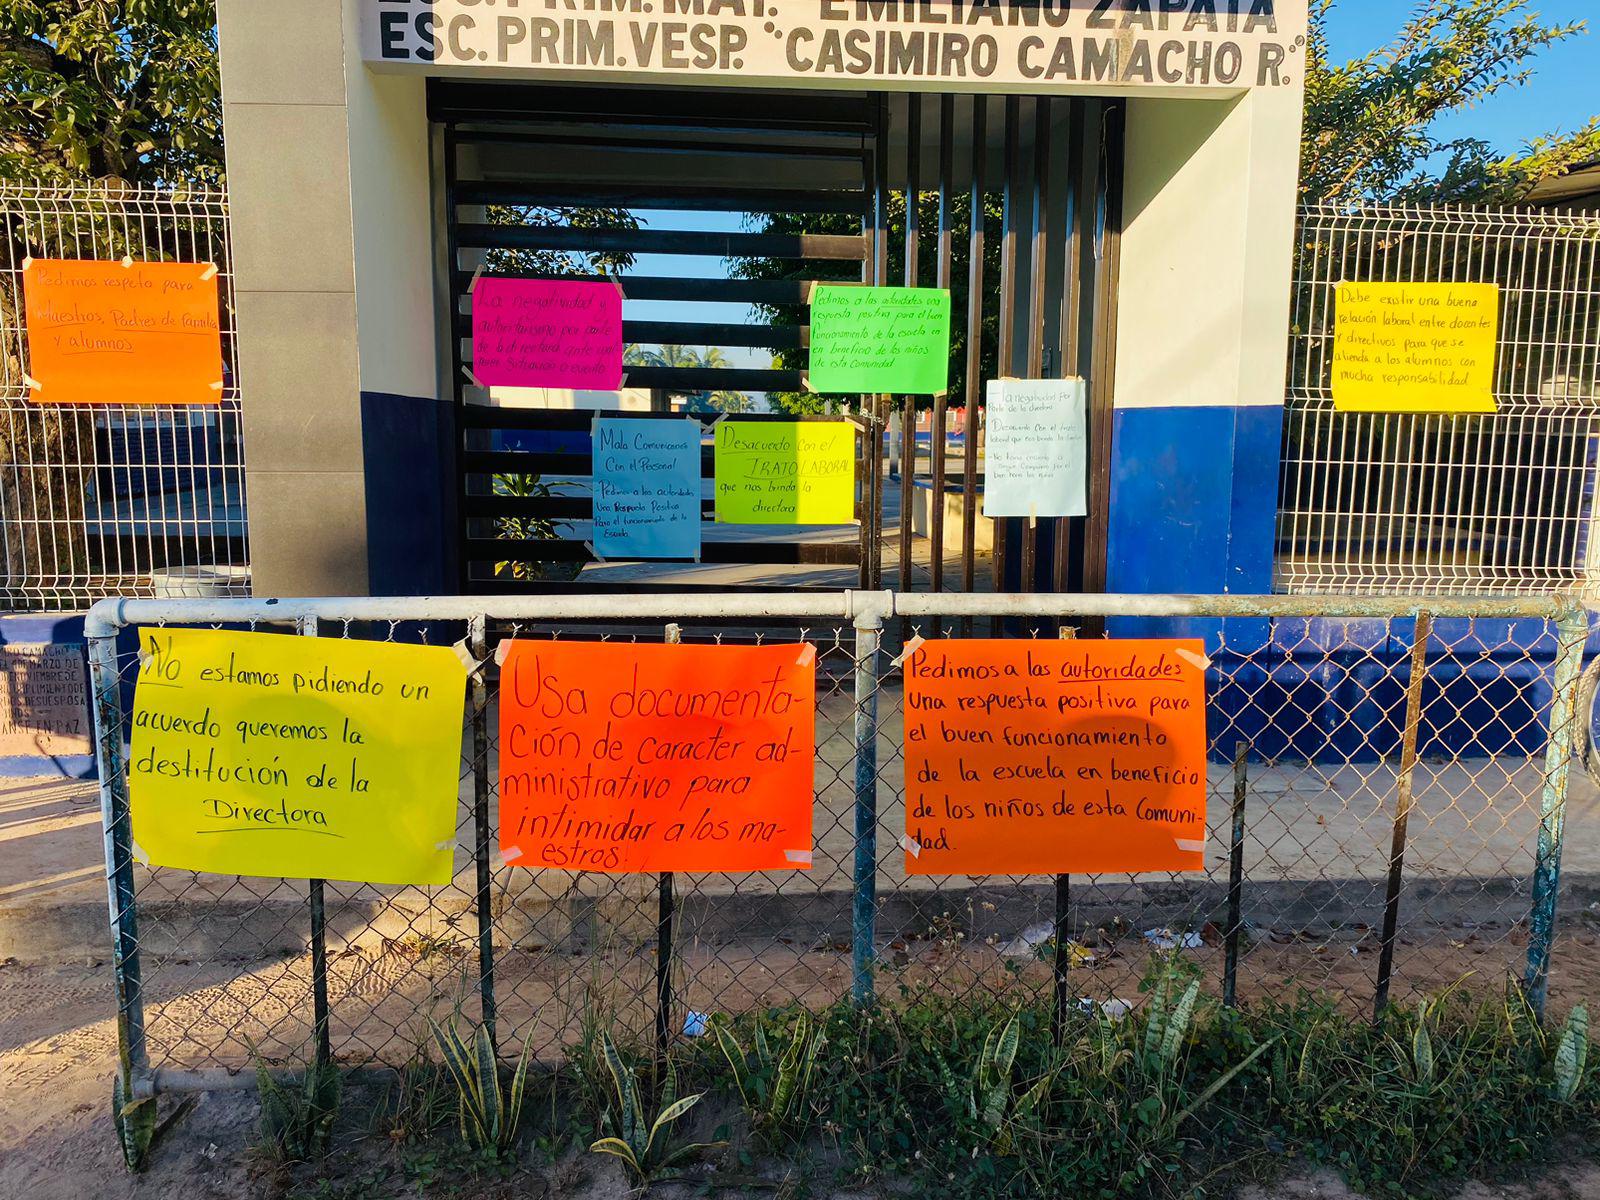 ESC. PRIM. MAT. "EMILIANO ZAPATA
ESC. PRIM. VESP. "CASIMIRO CAMACHO R."
Pedimos respeto para
Maestros, Padres de familia
y alumnos
La negatividad y
autoritarismo por parte
de la directora ante cual-
quier situación o evento
Pedimos a las autoridades una
respuesta positiva para el buen
funcionamiento de la escuela en
en beneficio de los niños
de esta comunidad
Debe existir una buena
relación laboral entre docentes
y directivos para que se
atienda a los alumnos con
mucha responsabilidad
Mala Comunicación
Con el Personal
-Pedimos a las autoridades
Una Respuesta Positiva
Para el funcionamiento de la
Escuela.
Desacuerdo con el
TRATO LABORAL
que nos brinda la
directora
-La negatividad por
Parte de la directora
Desacuerdo Con el trato
laboral que nos brinda la directora
- No
No estamos pidiendo un
acuerdo queremos la
destitución de la
Directora
Usa documenta-
ción de caracter ad-
ministrativo para
intimidar a los ma-
estros.
Pedimos a las autoridades
una respuesta positiva para
el buen funcionamiento
de la escuela en beneficio
de los niños de esta comuni-
dad.
CAMACHO
MARZO DE
EN PAZ